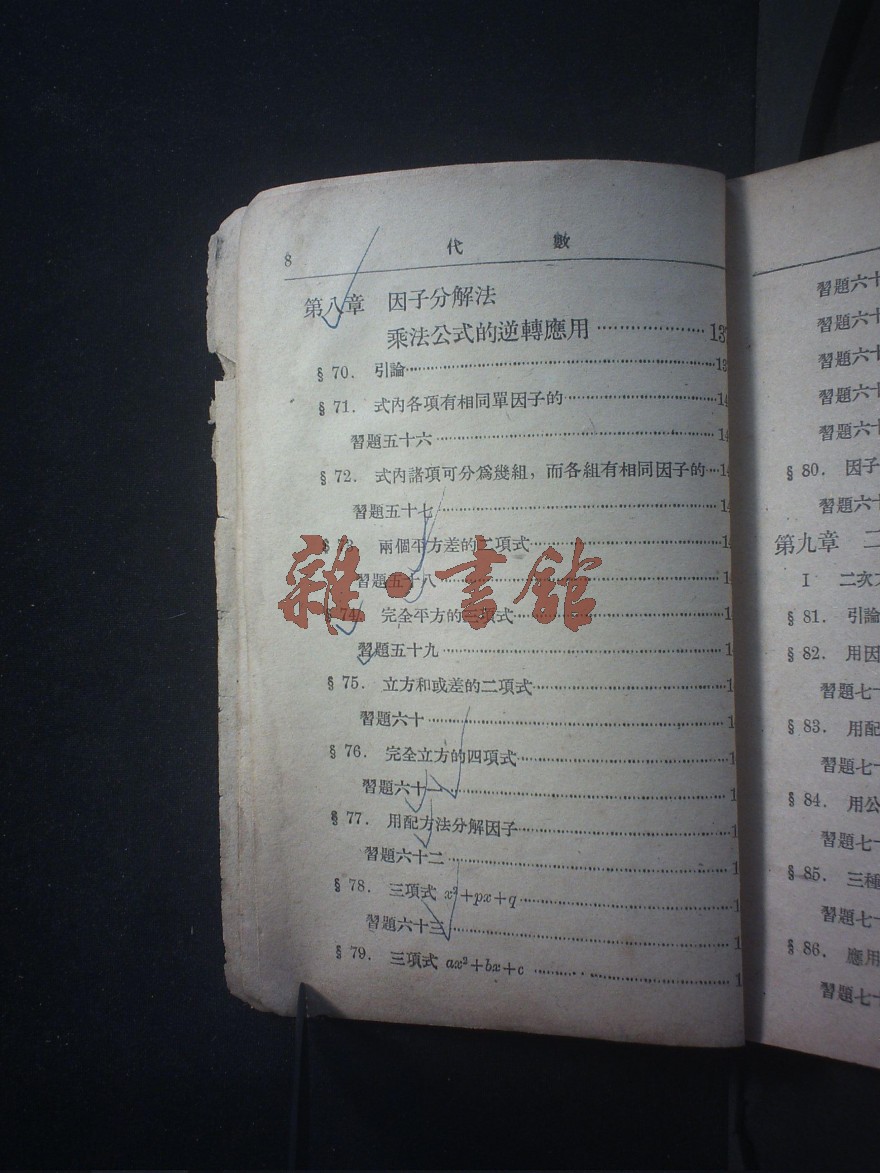 8 代 數
第八章 因子分解法
乘法公式的逆轉應用
§ 70. 引論
§ 71. 式內各項有相同單因子的
習題五十六
§ 72. 式內諸項可分爲幾組，而各組有相同因子的
習題五十七
兩個平方差的二項式
習題五十八
§ 74. 完全平方的三項式
習題五十九
§ 75. 立方和或差的二項式
習題六十
§ 76. 完全立方的四項式
習題六十一
§ 77. 用配方法分解因子
習題六十二
§ 78. 三項式 x²+px+q
習題六十三
§ 79. 三項式 ax²+bx+c
雜·書館
習題六十
習題六十
習題六十
習題六十
習題六十
§ 80. 因子
習題六十
第九章 二
I 二次
§ 81. 引論
§ 82. 用因
習題七十
§ 83. 用配
習題七十
§ 84. 用公
習題七十
§ 85. 三種
習題七十
§ 86. 應用
習題七十